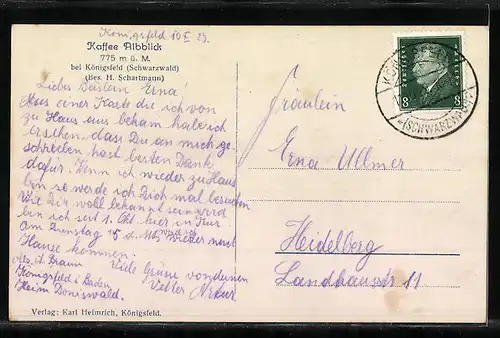 Königsfeld 10 X 29.
Kaffee Albblick
775 m ü. M.
bei Königsfeld (Schwarzwald)
(Bes. H. Schartmann)
Liebes Bäslein Erna!
Aus einer Karte die ich von
zu Haus aus bekam habe ich
ersehen, dass Du an mich ge-
schrieben hast besten Dank
dafür. Wenn ich wieder zu Haus
bin so werde ich Dich mal besuchen
Wie Dir wohl bekannt sein wird
bin ich seit 1. Okt. hier in Kur
am Dienstag 15. d. Mts. werde ich wieder nach
Hause kommen.
Viele Grüsse von deinem
Vetter Artur
Königsfeld i. Baden
Heim Doniswald.
Fräulein
Erna Ullmer
Heidelberg
Landhausstr 11
DEUTSCHES REICH
8 8
KÖNIGSFELD
(SCHWARZWALD)
Verlag: Karl Heimrich, Königsfeld.